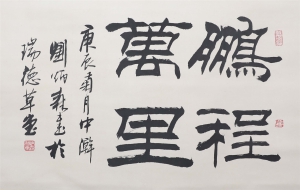 鵬程
萬里
庚辰菊月中澣
劉炳森書於
瑞德草堂